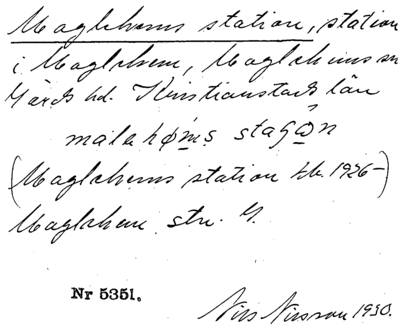 Maglehems station, station
i Maglehem, Maglehems sn
Gärds hd. Kristianstads län
malahøms staʃωn
(Maglehems station tk. 1926-)
Maglehem stn. G.
Nr 5351.
Nils Nilsson 1930.